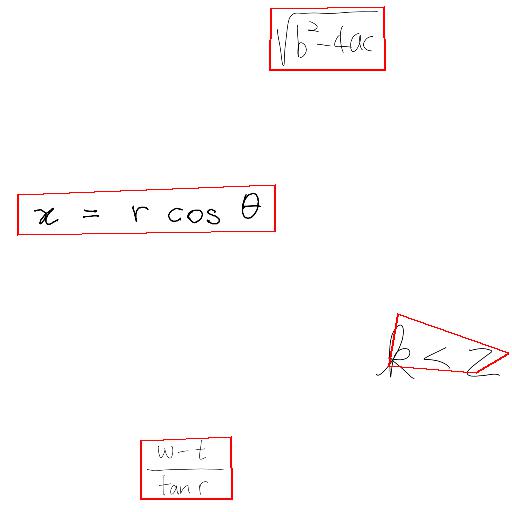 √(b²-4ac)
x = r cos θ
k < 2
w-t
tan r